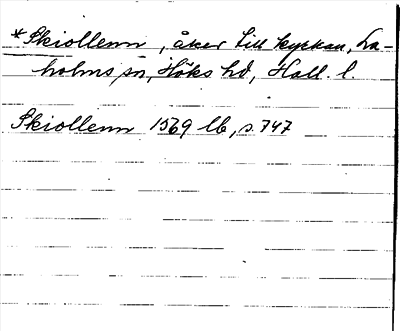 *Skiollenn, åker till kyrkan, La-
holms sn, Höks hd, Hall. l.
Skiollenn 1569 lb, s. 747